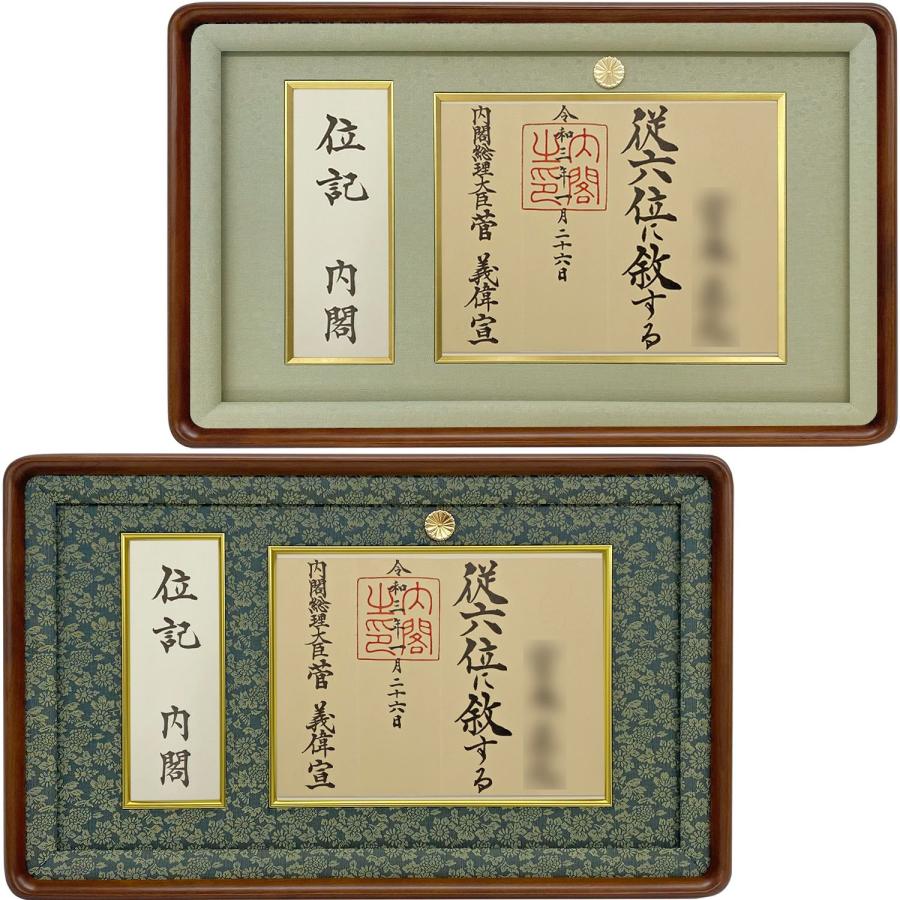 従六位に叙する
令和三年一月二十六日
内閣之印
内閣総理大臣菅 義偉宣
位記 内閣
従六位に叙する
令和三年一月二十六日
内閣之印
内閣総理大臣菅 義偉宣
位記 内閣